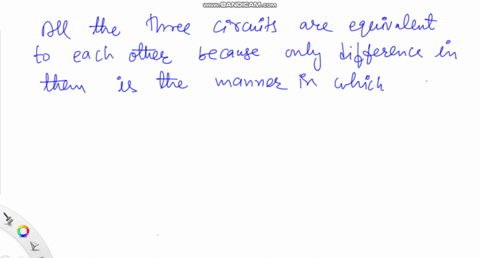 www.BANDICAM.com
All the three circuits are equivalent
to each other because only difference in
them is the manner in which